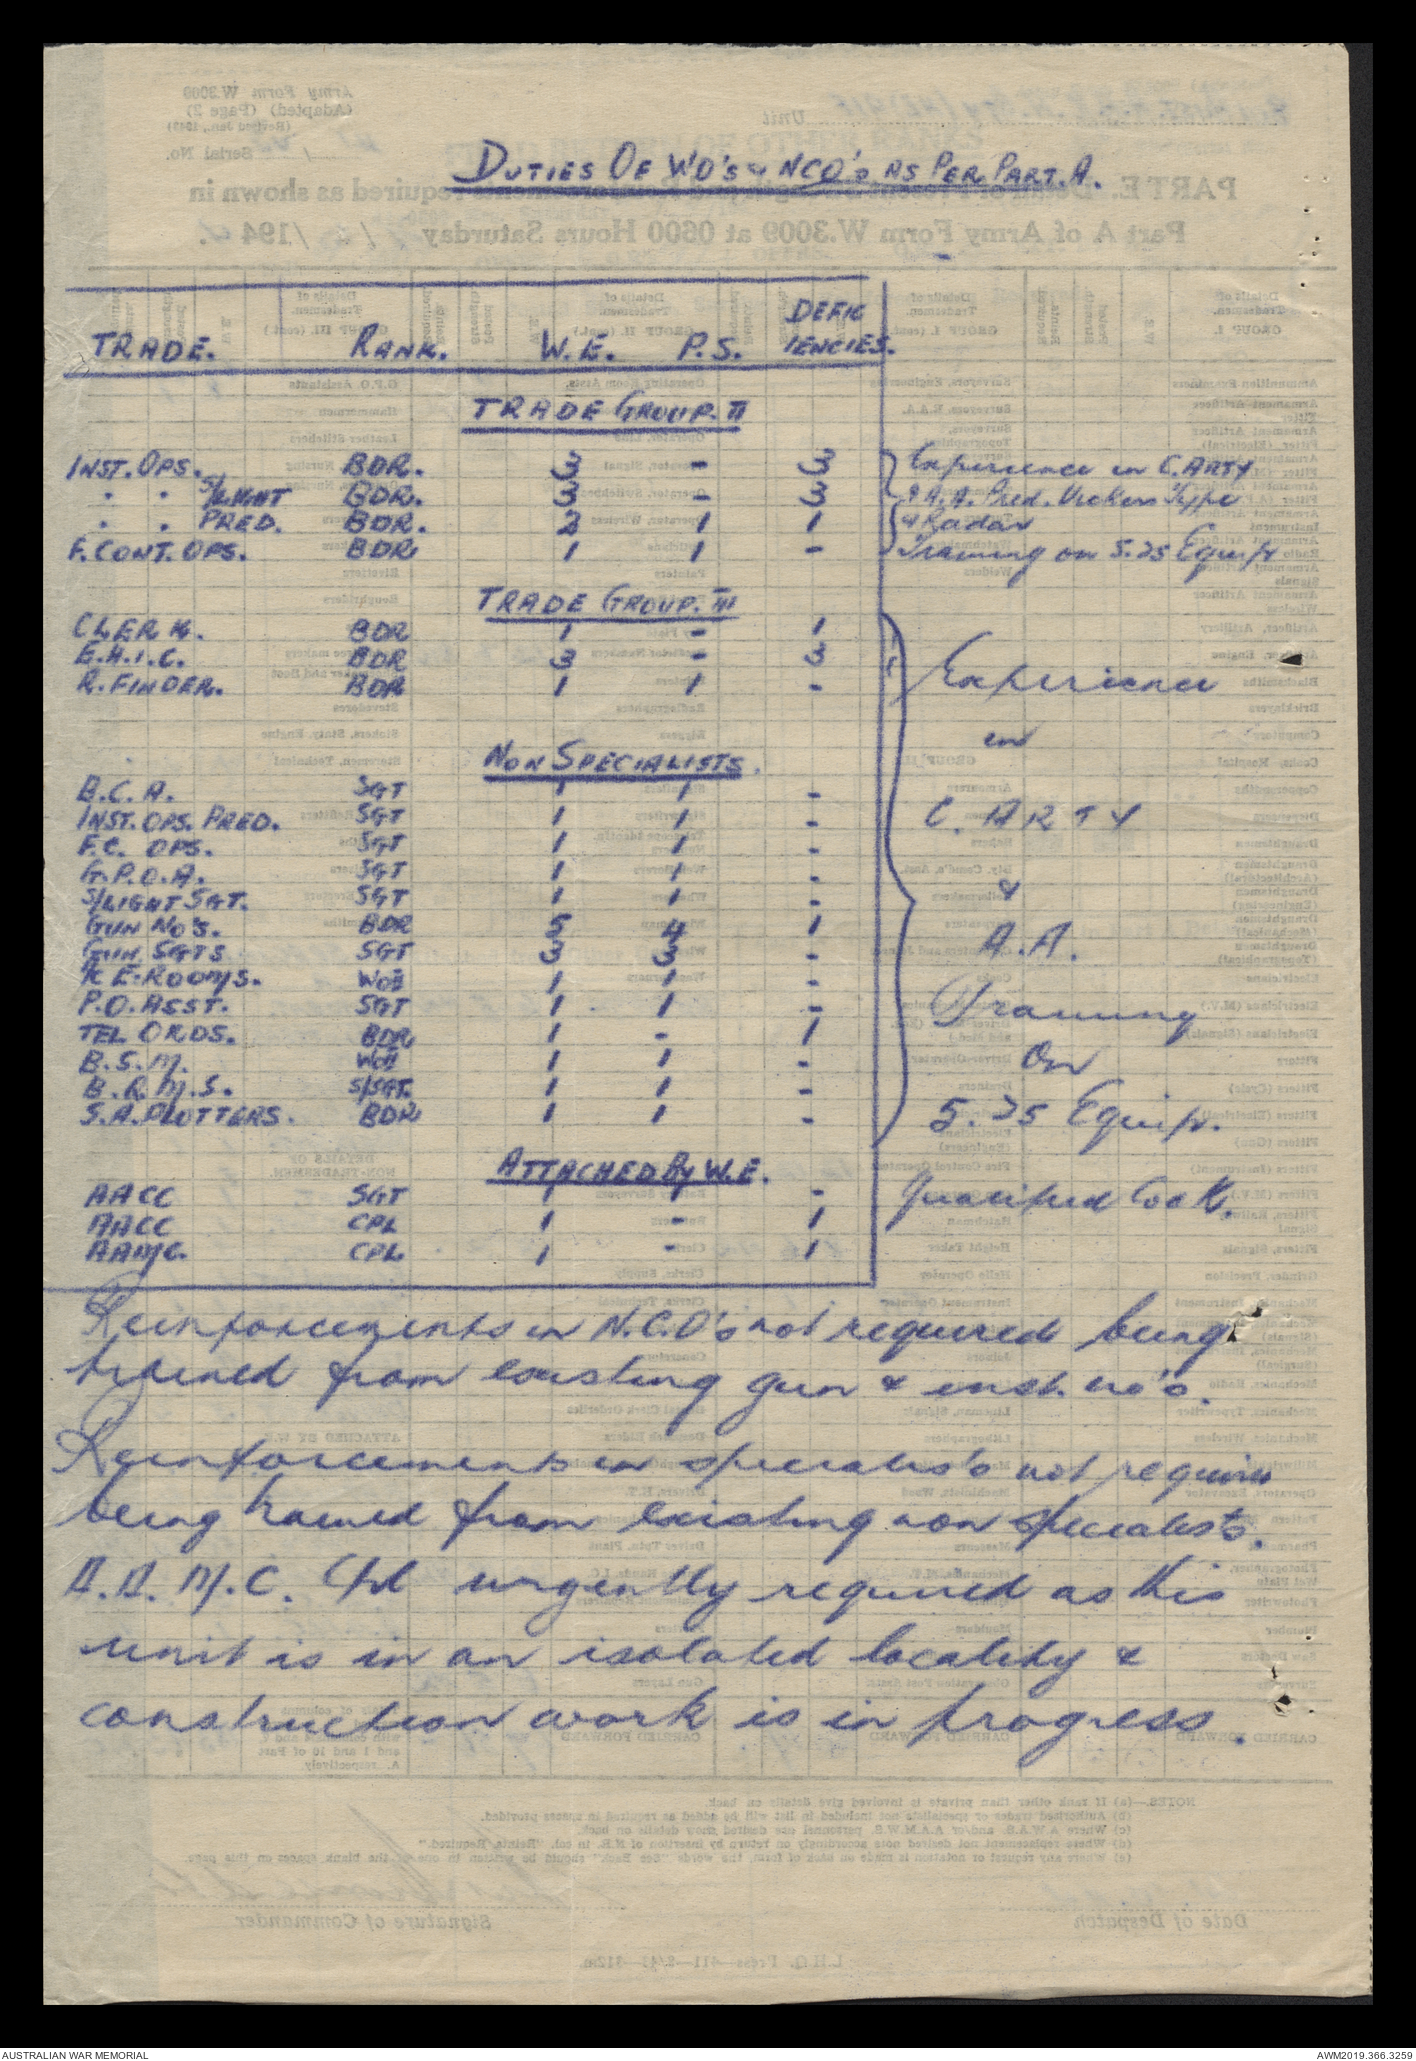 DUTIES OF WO'S & NCO's AS PER PART. A.
TRADE. RANK. W.E. P.S. DEFIC
IENCIES.
TRADE GROUP. II
INST. OPS. BDR. 3 - 3 Experience in C. ARTY
" " S/LIGHT BDR. 3 - 3 & A.A. Pred. Vickers Type
" " PRED. BDR. 2 1 1 & Radar
F. CONT. OPS. BDR 1 1 - Training on 5.25 Equip
TRADE GROUP. III
CLERK. BDR 1 - 1
E.H.I.C. BDR 3 - 3
R. FINDER. BDR 1 1 - Experience
in
NON SPECIALISTS.
B.C.A. SGT 1 1 -
INST. OPS. PRED. SGT 1 1 - C. ARTY
F.C. OPS. SGT 1 1 -
G.P.O.A. SGT 1 1 -
S/LIGHT SGT. SGT 1 1 - &
GUN NO'S. BDR 5 4 1
GUN SGTS SGT 3 3 - A.A.
E-ROOMS. WOII 1 1 -
P.O. ASST. SGT 1 1 - Training
TEL ORDS. BDR 1 - 1
B.S.M. WOII 1 1 - On
B.Q.M.S. S/SGT. 1 1 -
S.A. PLOTTERS. BDR 1 1 - 5.25 Equip.
ATTACHED By W.E.
AACC SGT 1 1 - Qualified Cook.
AACC CPL 1 - 1
AAMC. CPL 1 - 1
Reinforcements in N.C.O's not required being
trained from existing gun & inst. no's.
Reinforcements in specialists not requires
being trained from existing non specialists.
A.A.M.C. Cpl urgently required as this
unit is in an isolated locality &
construction work is in progress.
AUSTRALIAN WAR MEMORIAL AWM2019.366.3259